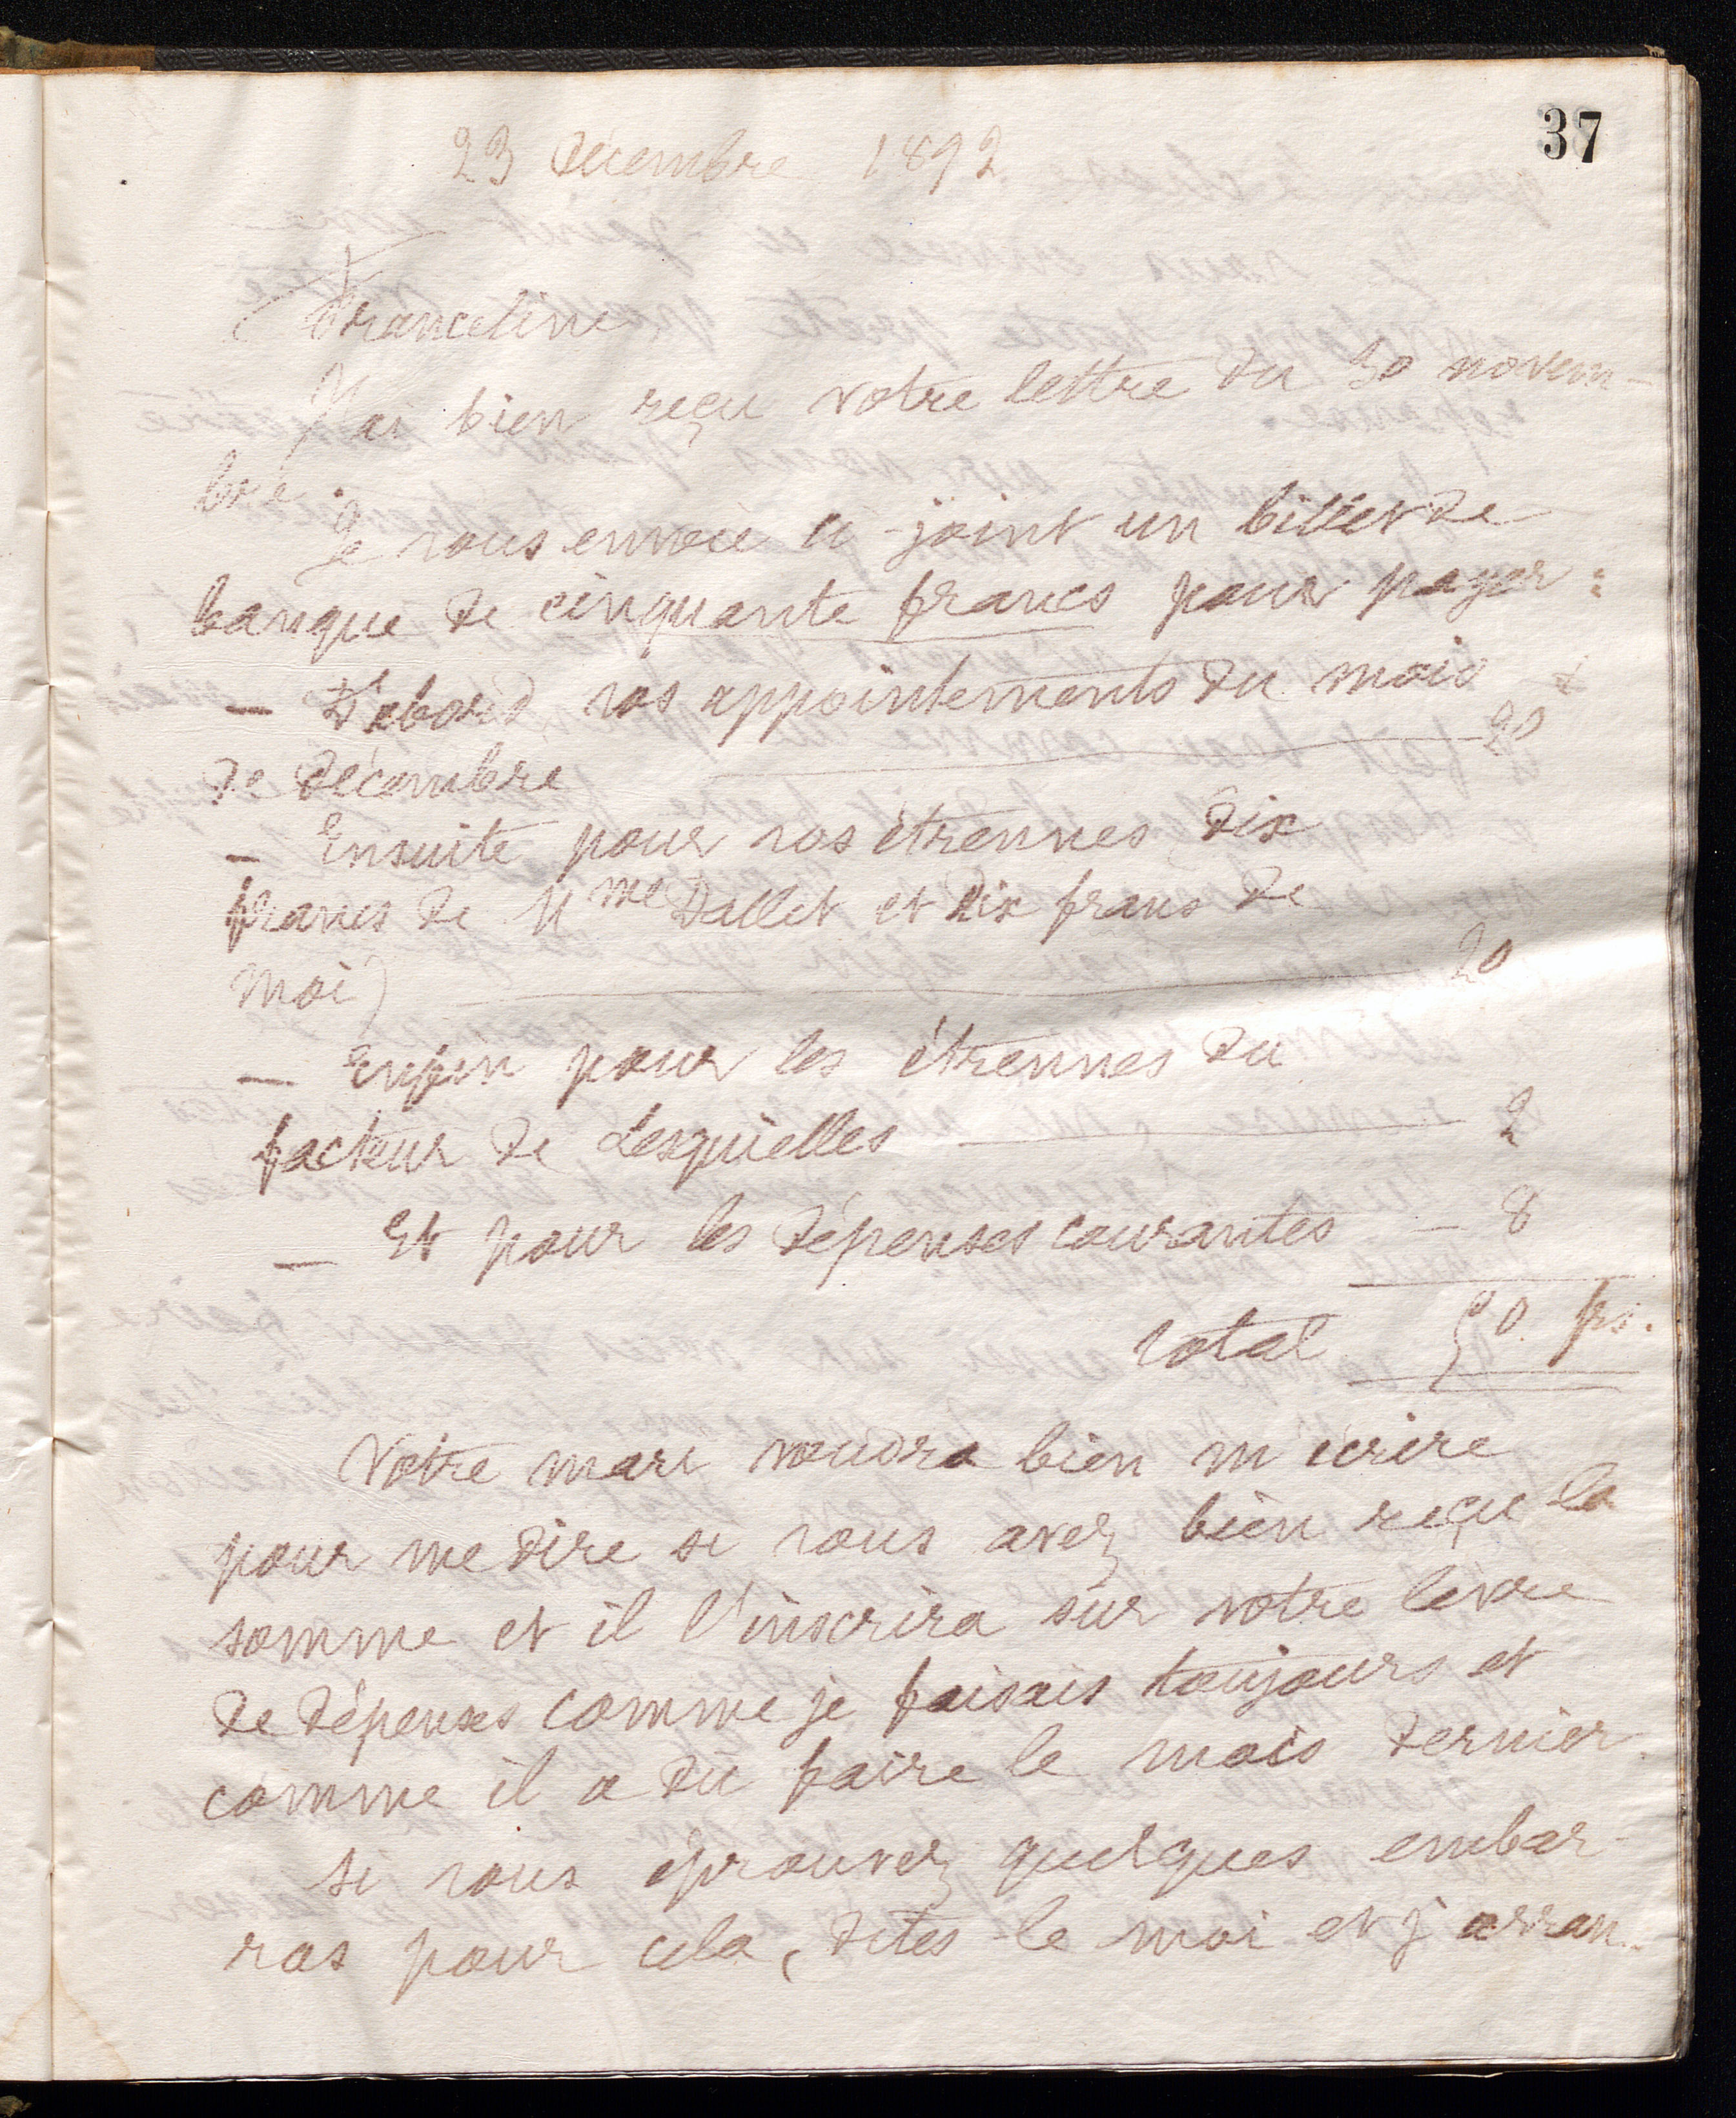 37
23 Décembre 1892
Franceline
J'ai bien reçu votre lettre du 30 novem-
bre.
Je vous envoie ci-joint un billet de
banque de cinquante francs pour payer :
— D'abord vos appointements du mois
de Décembre — 20
— Ensuite pour vos étrennes dix
francs de Mme Dallet et dix francs de
moi) — 20
— Enfin pour les étrennes du
facteur de Lesquielles — 2
— Et pour les dépenses courantes — 8
total 50 frs.
Votre mari voudra bien m'écrire
pour me dire si vous avez bien reçu la
somme et il l'inscrira sur votre livre
de dépenses comme je faisais toujours et
comme il a dû faire le mois dernier.
Si vous éprouvez quelques embar-
ras pour cela, dites-le moi et j'arran-